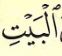 ٱلْبَيْتِ